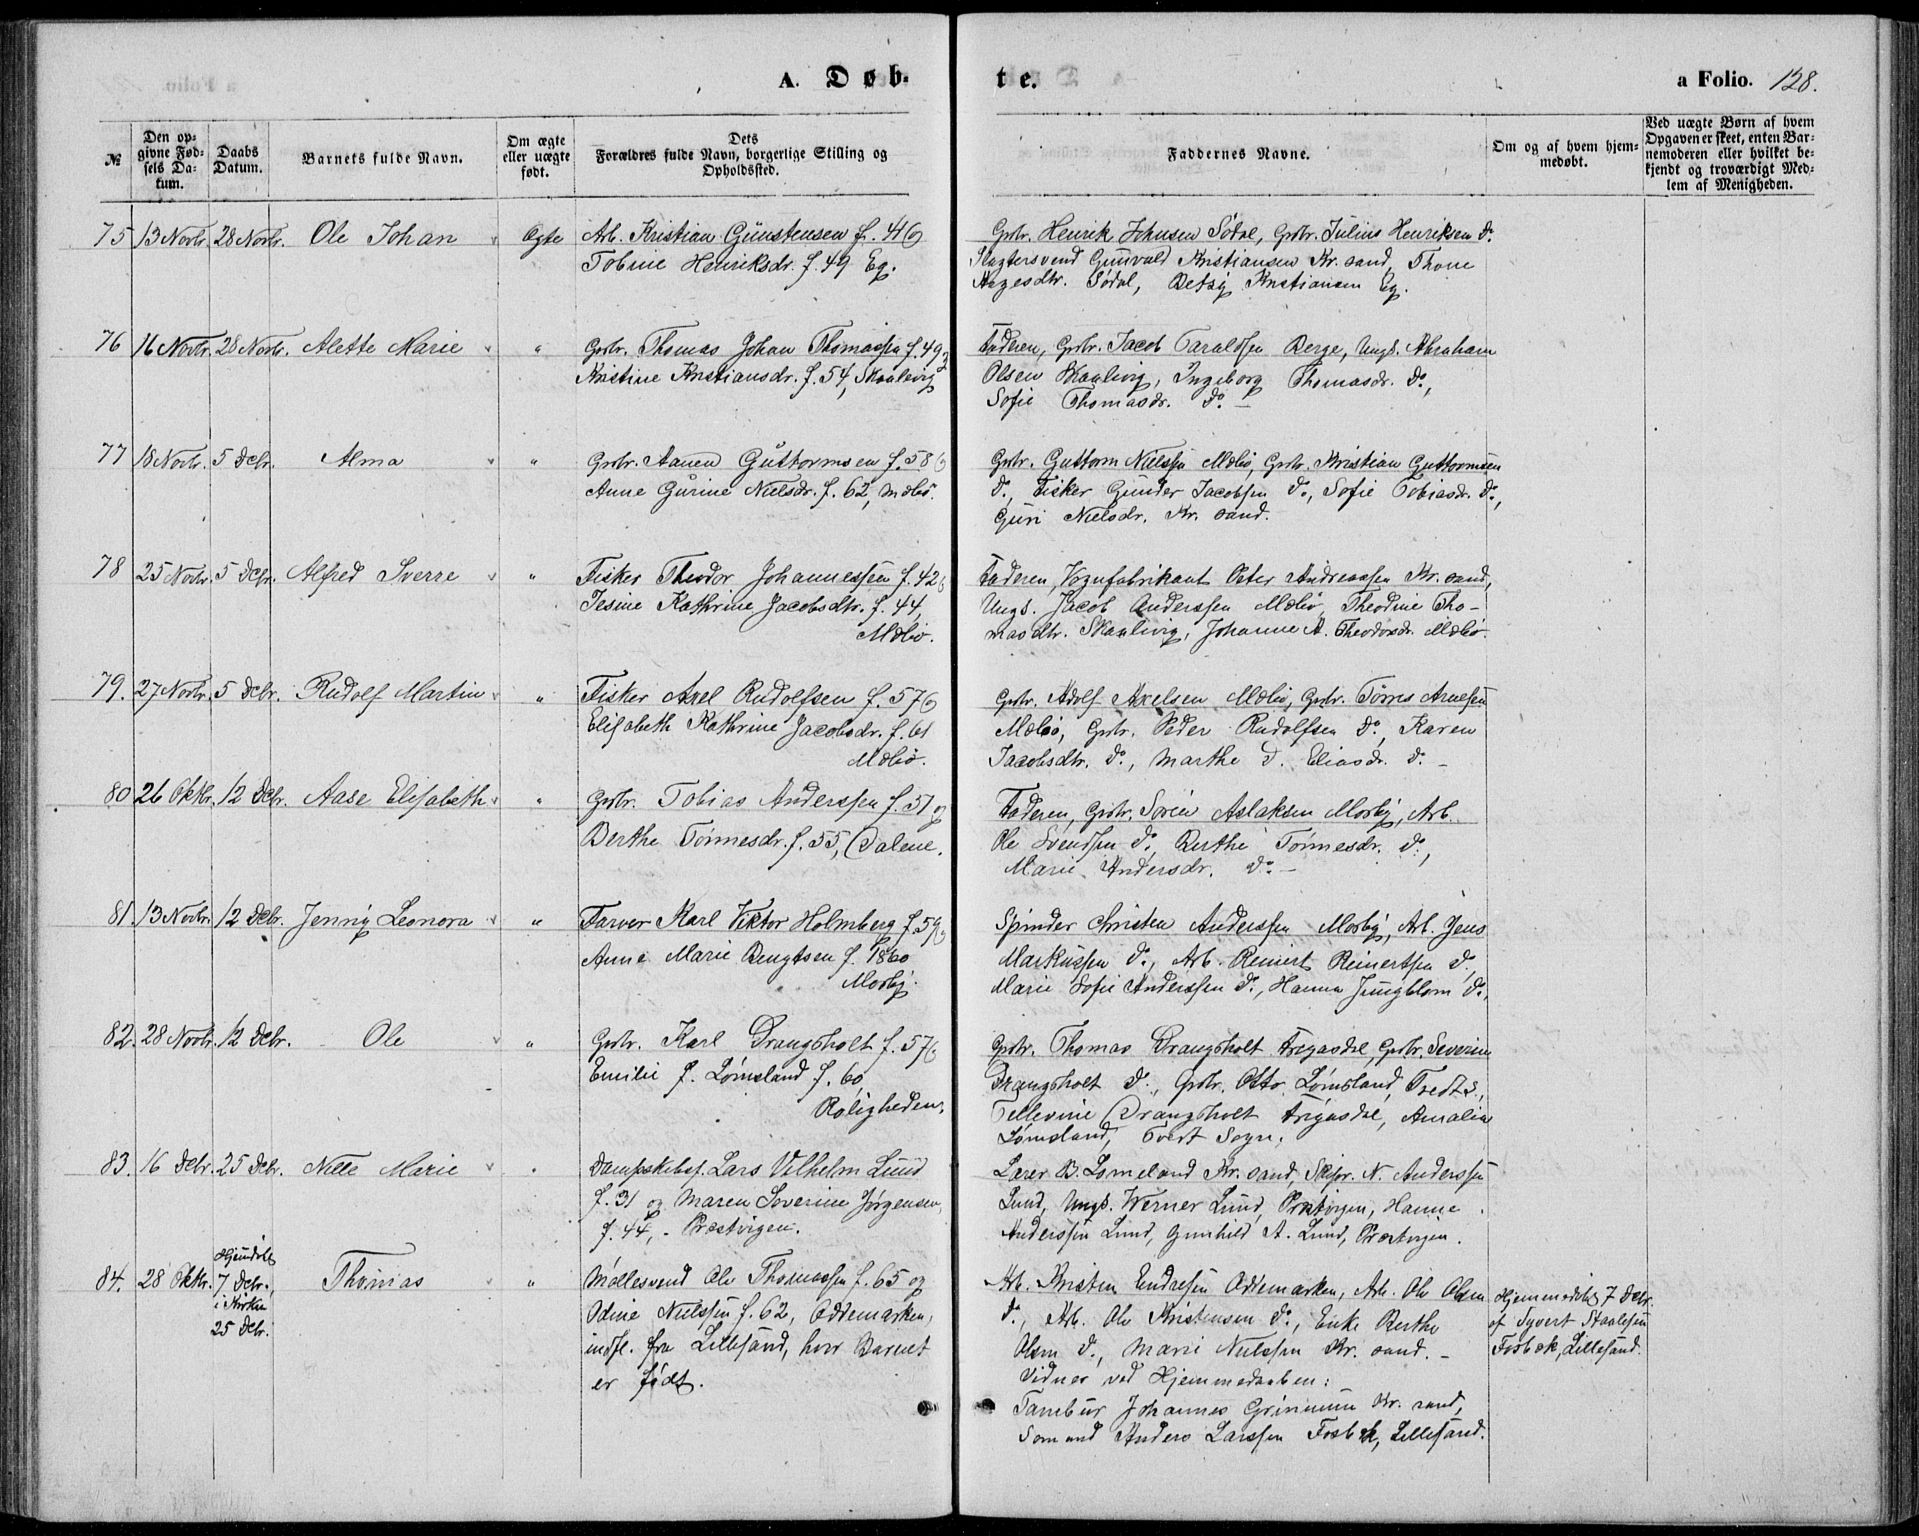 A. Døb-
te.
a Folio. 128.
№
Den op-
givne Fød-
sels Da-
tum.
Daabs
Datum.
Barnets fulde Navn.
Om ægte
eller uægte
født.
Dets
Forældres fulde Navn, borgerlige Stilling og
Opholdssted.
Faddernes Navne.
Om og af hvem hjem-
medøbt.
Ved uægte Børn af hvem
Opgaven er skeet, enten Bar-
nemoderen eller hvilket be-
kjendt og troværdigt Med-
lem af Menigheden.
75 13 Novbr. 28 Novbr. Ole Johan Ægte Arb. Kristian Gunstensen f. 46 og
Tobine Henriksdr. f. 49 Eg.
Grbr. Henrik Johnsen Sødal, Grbr. Julius Henriksen do.
Slagtersvend Gunvald Kristiansen Kr.sand, Thone
Aagesdtr. Sødal, Betsy Kristiansen Eg.
76 16 Novbr. 28 Novbr. Alette Marie " Grbr. Thomas Johan Thomassen f. 49 og
Kristine Kristiansdr. f. 54, Skaalevig
Faderen, Grbr. Jacob Taraldsen Berge, Ungk. Abraham
Olsen Skaalevig, Ingeborg Thomasdr. do,
Sofie Thomasdr. do. –
77 18 Novbr. 5 Decbr. Alma " Grbr. Aanen Guttormsen f. 58 og
Anne Gurine Nielsdr. f. 62, Mæbø.
Grbr. Guttorm Nielsen Mæbø, Grbr. Kristian Guttormsen
do, Fisker Gunder Jacobsen do, Sofie Tobiasdr. do,
Guri Nielsdr. Kr.sand.
78 25 Novbr. 5 Decbr. Alfred Sverre " Fisker Theodor Johannessen f. 42 og
Jesine Kathrine Jacobsdtr. f. 44,
Mæbø.
Faderen, Vognfabrikant Peter Andreassen Kr.sand,
Ungk. Jacob Anderssen Mæbø, Theodine Tho-
masdtr. Skaalevig, Johanne A. Theodorsdr. Mæbø.
79. 27 Novbr. 5 Decbr. Rudolf Martin " Fisker Axel Rudolfsen f. 57 og
Elisabeth Kathrine Jacobsdr. f. 61
Mæbø.
Grbr. Adolf Axelsen Mæbø, Grbr. Tørres Arnelsen
Mæbø, Grbr. Peder Rudolfsen do, Karen
Jacobsdtr. do, Marthe D. Eliasdr. do. –
80 26 Oktbr. 12 Decbr. Aase Elisabeth " Grbr. Tobias Anderssen f. 51 og
Berthe Tønnesdr. f. 55, Dalene.
Faderen, Grbr. Søren Aslaksen Mosby, Arb.
Ole Svendsen do, Berthe Tønnesdr. do,
Marie Andersdr. do. –
81. 13 Novbr. 12 Decbr. Jenny Leonora " Farver Karl Viktor Holmberg f. 59 og
Anna Marie Bengtsen f. 1860
Mosby.
Spinder Christen Anderssen Mosby, Arb. Jens
Markussen do, Arb. Reinert Reinertsen do,
Marie Sofie Anderssen do, Hanna Jungblom do,
82. 28 Novbr. 12 Decbr. Ole " Grbr. Karl Drangsholt f. 57 og
Emilie f. Lømsland f. 60,
Roligheden.
Grbr. Thomas Drangsholt Frigasdal, Grbr. Severin
Drangsholt do, Grbr. Otto Lømsland, Tvedt S.,
Tellevine Drangsholt Frigasdal, Amalia
Lømsland, Tvert Sogn.
83. 16 Decbr. 25 Decbr. Nille Marie " Dampskibsf. Lars Vilhelm Lund
f. 31 og Maren Severine Jørgensen,
f. 44, – Præstvigen.
Lærer B. Lømsland Kr.sand, Skipr. N. Anderssen
Lund, Ungk. Werner Lund, Præstvigen, Hanne
Anderssen Lund, Gunhild A. Lund, Præstvigen.
84. 28 Oktbr. Hjemdøbt
7 Decbr.,
i Kirken
25 Decbr.
Thomas " Møllesvend Ole Thomassen f. 65 og
Odine Nielssen f. 62, Oddemarken,
indfl. fra Lillesand, hvor Barnet
er født.
Arb. Kristen Endresen Oddemarken, Arb. Ole Olsen
do, Arb. Ole Kristensen do, Enke Berthe
Olsen do, Marie Nielssen Kr.sand. –
Vidner ved Hjemmedaaben:
Tambur Johannes Grimmun Kr.sand,
Sømand Anders Larssen Fosbæk, Lillesand.
Hjemmedøbt 7 Decbr.
af Syvert Staalesen
Fosbæk, Lillesand.